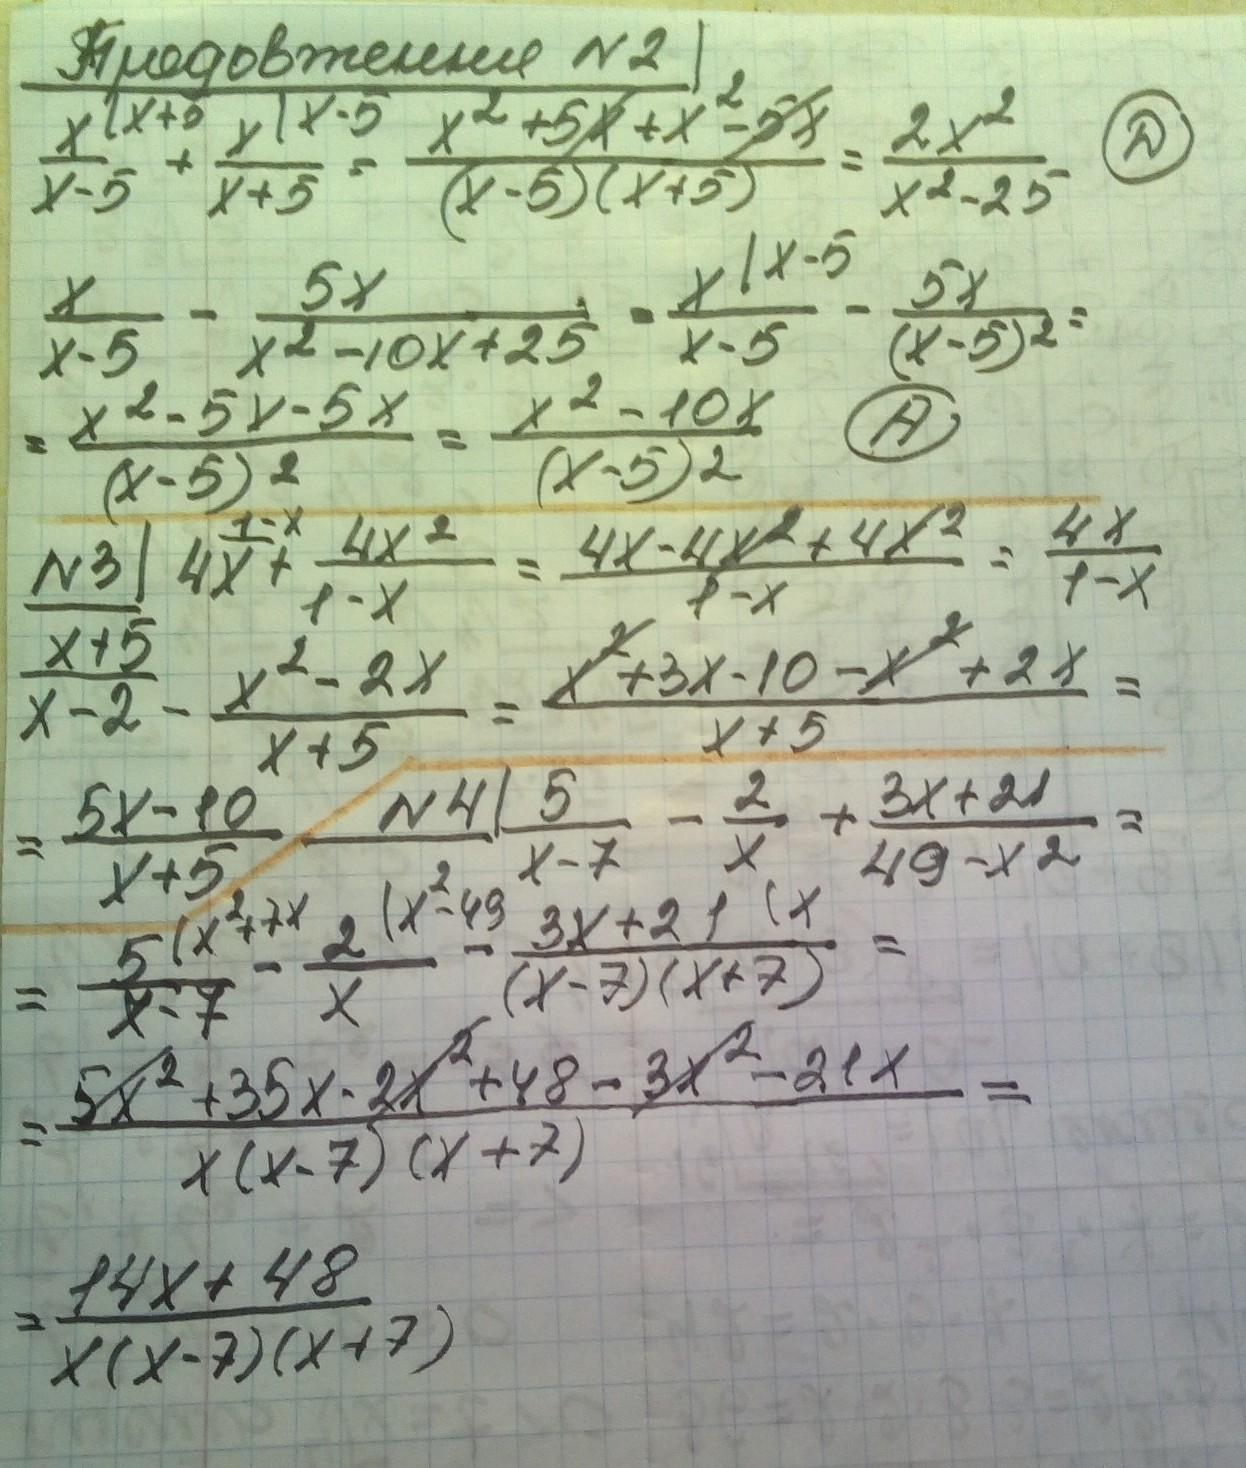 Продовження N2
x/(x-5) |x+5 + x/(x+5) |x-5 = (x²+5x+x²-5x)/((x-5)(x+5)) = 2x²/(x²-25) Д
x/(x-5) - 5x/(x²-10x+25) = x/(x-5) |x-5 - 5x/(x-5)² =
= (x²-5x-5x)/(x-5)² = (x²-10x)/(x-5)² А
N3 4x |1-x + 4x²/(1-x) = (4x-4x²+4x²)/(1-x) = 4x/(1-x)
(x+5)/(x-2) - (x²-2x)/(x+5) = (x²+3x-10-x²+2x)/(x+5) =
= (5x-10)/(x+5) N4 5/(x-7) - 2/x + (3x+21)/(49-x2) =
= 5/(x-7) (x²+7x - 2/x (x²-49 - (3x+21)/((x-7)(x+7)) (x =
= (5x²+35x-2x²+48-3x²-21x)/(x(x-7)(x+7)) =
= (14x+48)/(x(x-7)(x+7))